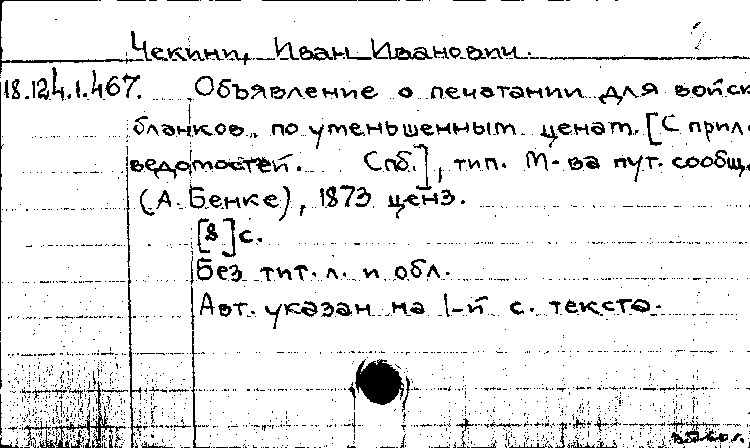 Чекини, Иван Иванович.
18.124.1.467. Объявление о печатании для войск
бланков по уменьшенным ценам. [С прил.
ведомостей. Спб.], тип. М-ва пут. сообщ.
(А. Бенке), 1873 ценз.
[8] с.
Без тит. л. и обл.
Авт. указан на 1-й с. текста.